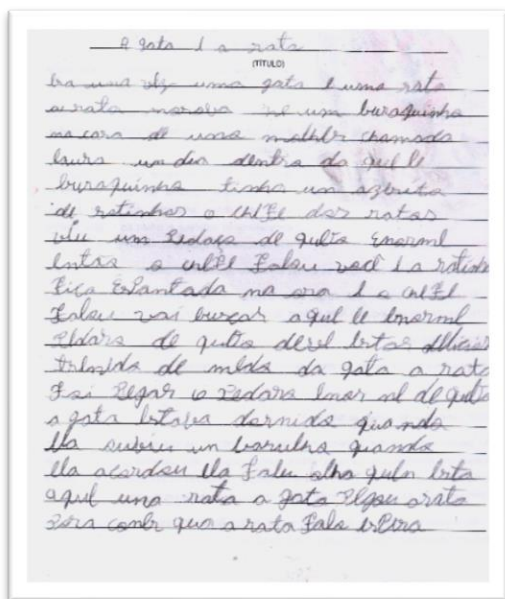 A gata e a rata
(TÍTULO)
Era uma vez uma gata e uma rata
a rata morava ne um buraquinho
na casa de uma mulher chamada
laura um dia dentra da quele
buraquinho tinha um
de ratinhos o chefe dos ratos
viu um pedaço de queito enorme
entao o chefe falou você e a ratinha
fica espantada na ora e o chefe
falou vai buscar aquele enorme
pedaso de queito deve estar
de medo da gata a rata
foi pegar o pedaso enorme de queito
a gata estava dormido quando
ela um barulho quando
ela acordou ela falu olha quem esta
aqui uma rata a gata pegou a rata
para comer a rata fala